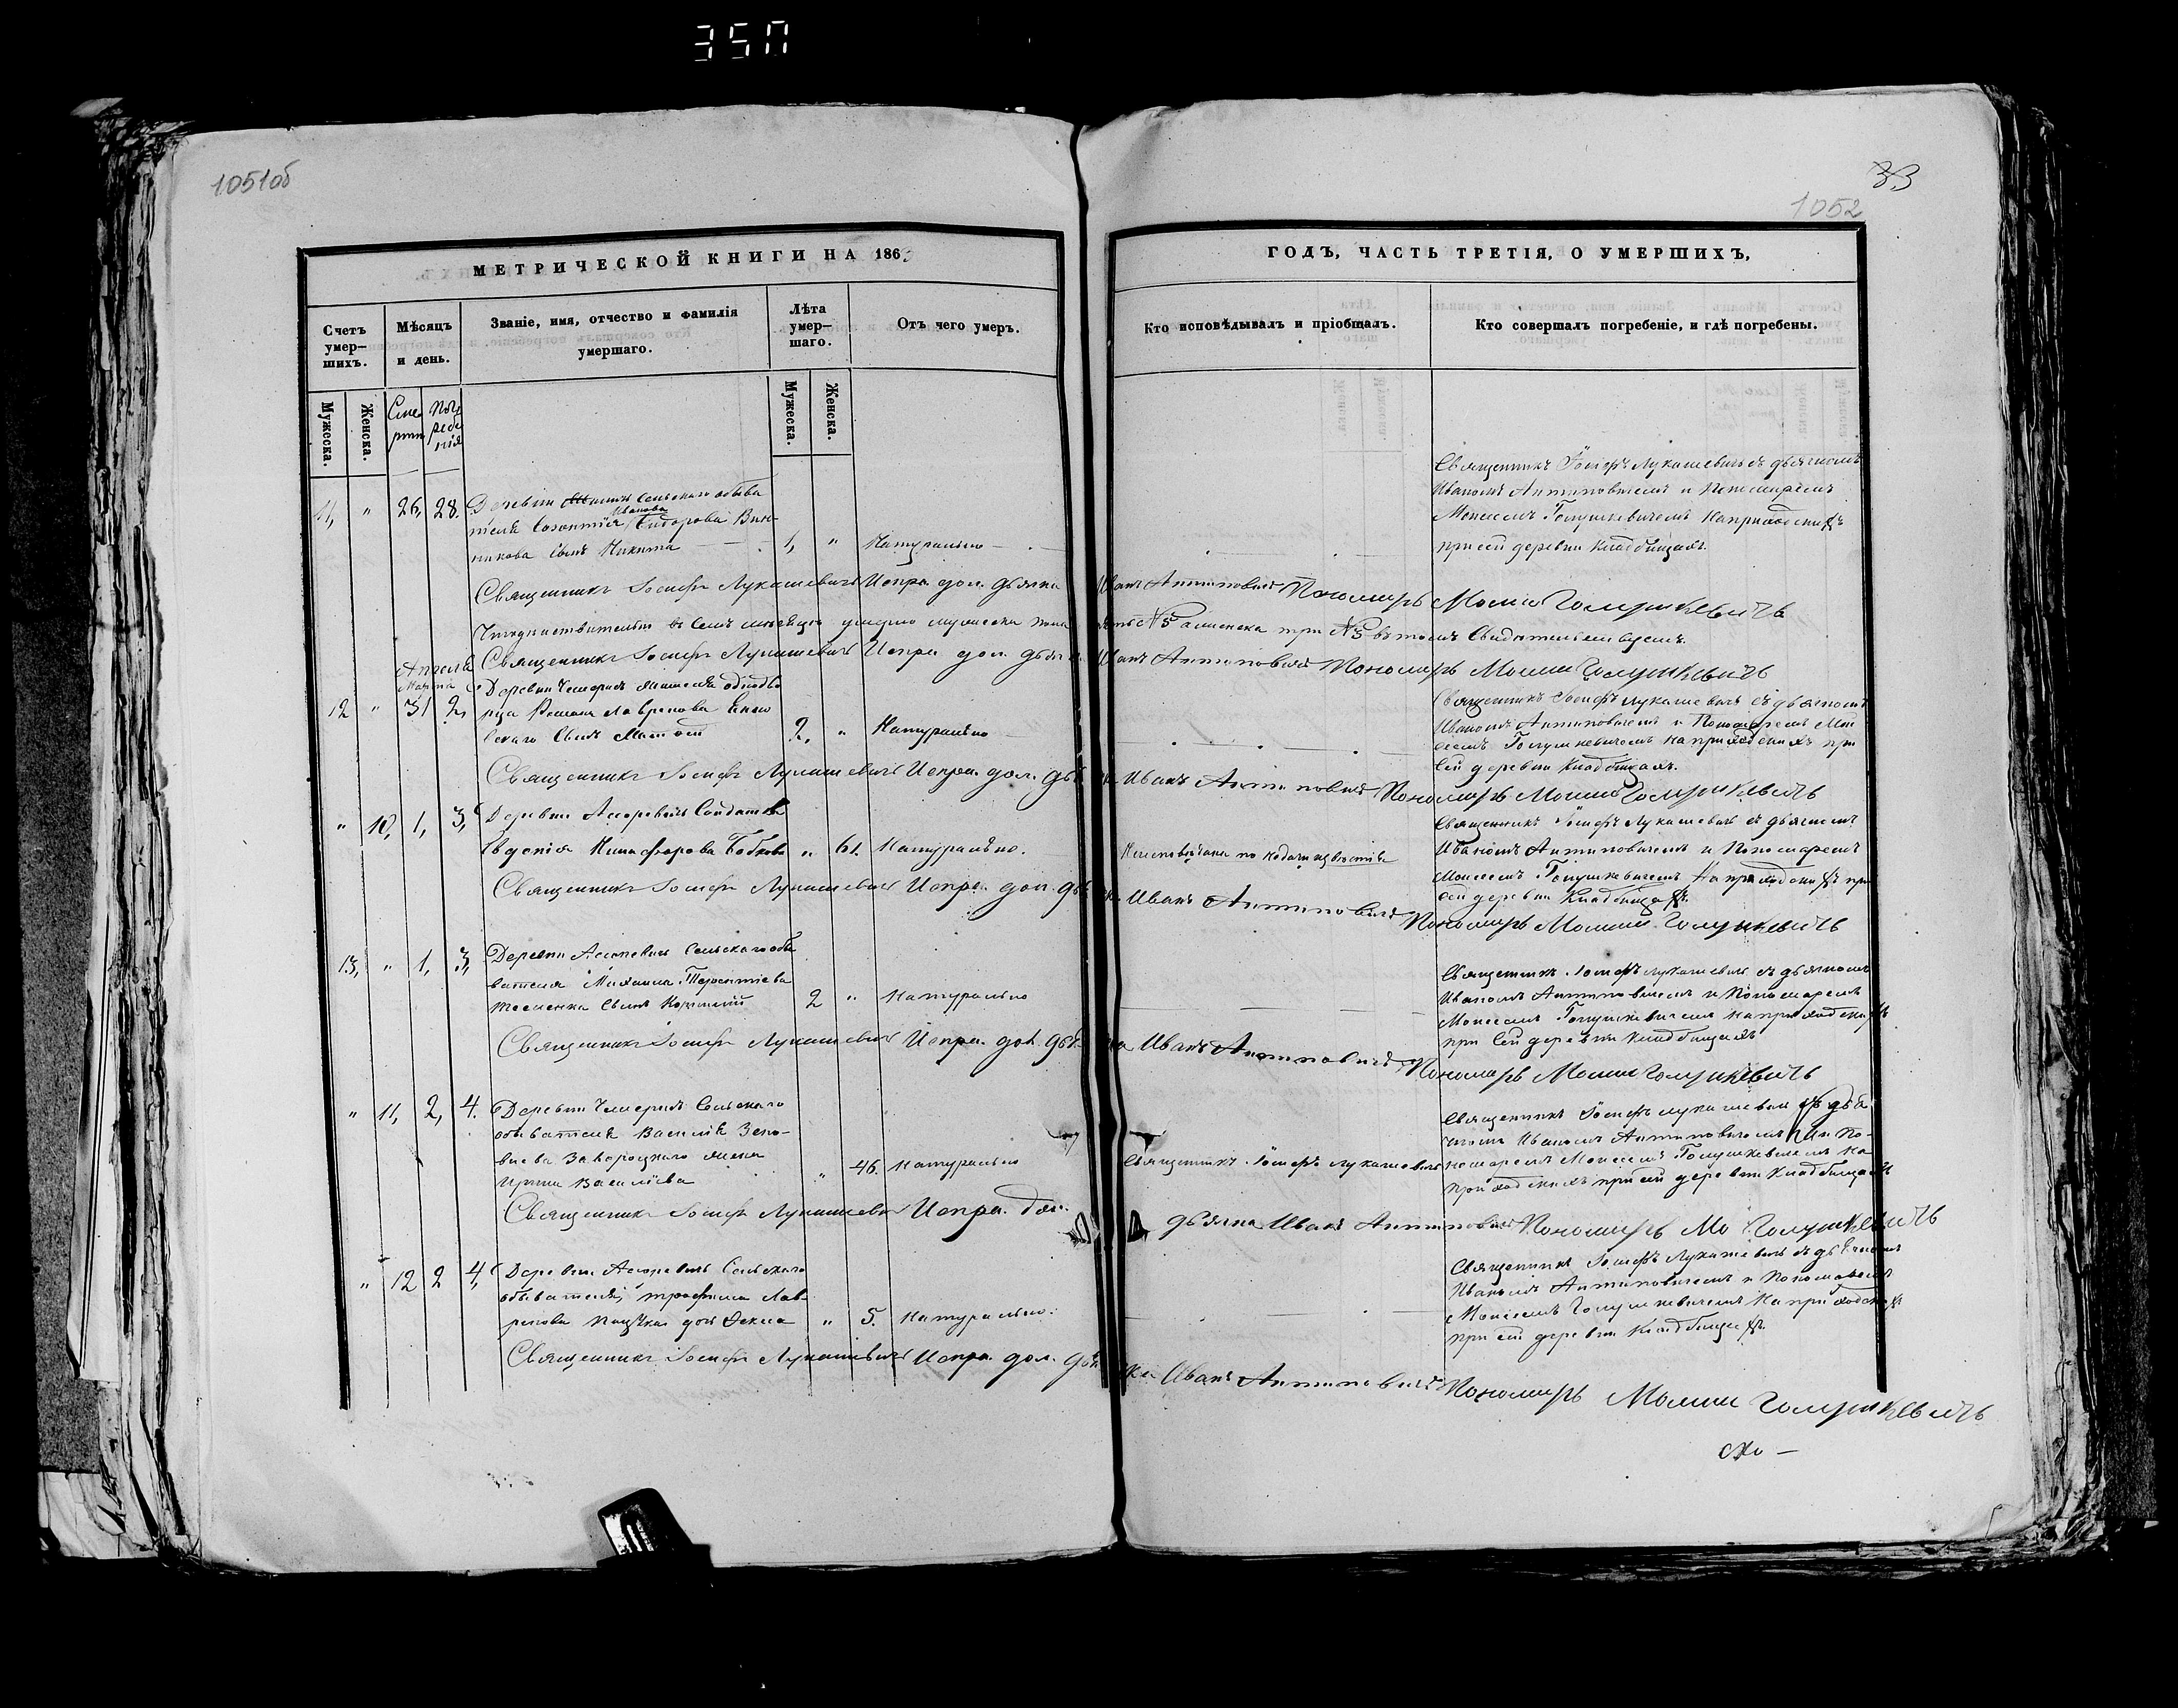 35П
1051об
33
1052
МЕТРИЧЕСКОЙ КНИГИ НА 186
ГОДЪ, ЧАСТЬ ТРЕТІЯ, О УМЕРШИХЪ,
Счетъ умер–шихъ.
Мѣсяцъ и день.
Званіе, имя, отчество и фамилія умершаго.
Лѣта умер–шаго.
Отъ чего умеръ.
Кто исповѣдывалъ и пріобщалъ.
Кто совершалъ погребеніе, и гдѣ погребены.
Мужеска.
Женска.
Смерти
Погребенія
Мужеска.
Женска.
11, " 26, 28. Деревни сельскаго обыва
теля Созонтія Иванова Сидорова Вин-
никова сынъ Никита 1, " Натурально
Священникъ Іосифъ Лукашевичъ съ дьячкомъ
Иваномъ Антиповичемъ и Пономаремъ
Моисеемъ Голушкевичемъ на приходскихъ
при сей деревни кладбищахъ.
Священникъ Іосифъ Лукашевичъ Испра. дол. дьячка Иванъ Антиповичъ Пономарь Моисей Голушкевичъ
Что действительно въ семъ месяце умерло мужеска пола №5 а женска три №3 въ томъ свидетельствуемъ.
Священникъ Іосифъ Лукашевичъ Испра. дол. дьячка Иванъ Антиповичъ Пономарь Моисей Голушкевичъ
Апреля
Марта
12 " 31 2, Деревни Чемерисъ жителя однодво
рца Романа Лаврено́ва
сынъ 2, " Натурально
Священникъ Іосифъ Лукашевичъ съ дьячкомъ
Иваномъ Антиповичемъ и Пономаремъ Мои
сеемъ Голушкевичемъ на приходскихъ при
сей деревни кладбищахъ.
Священникъ Іосифъ Лукашевичъ Испра. дол. дьячка Иванъ Антиповичъ Пономарь Моисей Голушкевичъ
" 10, 1, 3, Деревни Асаревичъ Солдатка
Евдокія Никифорова Бобкова " 61. Натурально.
Священникъ Іосифъ Лукашевичъ съ дьячкомъ
Иваномъ Антиповичемъ и Пономаремъ
Моисеемъ Голушкевичемъ на приходскихъ при
сей деревни кладбищахъ.
Священникъ Іосифъ Лукашевичъ Испра. дол. дьячка Иванъ Антиповичъ Пономарь Моисей Голушкевичъ
13, " 1, 3, Деревни Асаревичъ Сельскаго обы
вателя Михаила Терентіева
сынъ 2 " Натурально
Священникъ Іосифъ Лукашевичъ съ дьячкомъ
Иваномъ Антиповичемъ и Пономаремъ
Моисеемъ Голушкевичемъ на приходскихъ
при сей деревни кладбищахъ
Священникъ Іосифъ Лукашевичъ Испра. дол. дьячка Иванъ Антиповичъ Пономарь Моисей Голушкевичъ
" 11, 2, 4. Деревни Чемерисъ Сельскаго
обывателя Василія Зено-
віева жена
Ирина Василіева " 46. Натурально
Священникъ Іосифъ Лукашевичъ
Священникъ Іосифъ Лукашевичъ съ дья
чкомъ Иваномъ Антиповичемъ и По-
номаремъ Моисеемъ Голушкевичемъ на
приходскихъ при сей деревни кладбищахъ
Священникъ Іосифъ Лукашевичъ Испра. дол. дьячка Иванъ Антиповичъ Пономарь Мо Голушкевичъ
" 12 2 4, Деревни Асаревичъ Сельскаго
обывателя, Трофима Лав
ренова дочь Фекла " 5. Натурально.
Священникъ Іосифъ Лукашевичъ съ дьячкомъ
Иваномъ Антиповичемъ и Пономаремъ
Моисеемъ Голушкевичемъ на приходскихъ
при сей деревни кладбищахъ.
Священникъ Іосифъ Лукашевичъ Испра. дол. дьячка Иванъ Антиповичъ Пономарь Моисей Голушкевичъ